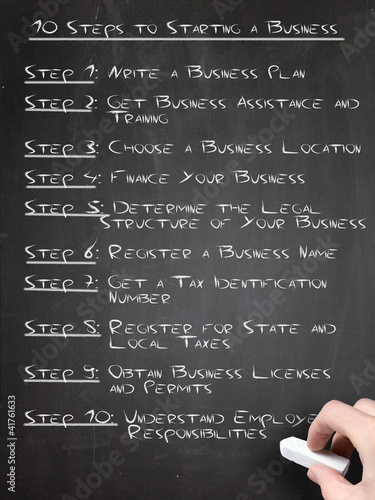 10 Steps to Starting a Business
Step 1: Write a Business Plan
Step 2: Get Business Assistance and
Training
Step 3: Choose a Business Location
Step 4: Finance Your Business
Step 5: Determine the Legal
Structure of Your Business
Step 6: Register a Business Name
Step 7: Get a Tax Identification
Number
Step 8: Register for State and
Local Taxes
Step 9: Obtain Business Licenses
and Permits
Step 10: Understand Employe
Responsibilities
Adobe Stock | #41761633